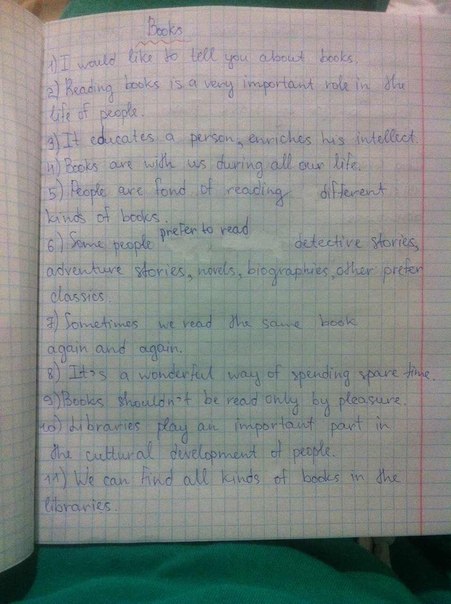 Books
1) I would like to tell you about books.
2) Reading books is a very important role in the
life of people.
3) It educates a person, enriches his intellect.
4) Books are with us during all our life.
5) People are fond of reading different
kinds of books.
6) Some people prefer to read detective stories,
adventure stories, novels, biographies, other prefer
classics.
7) Sometimes we read the same book
again and again.
8) It's a wonderful way of spending spare time.
9) Books shouldn't be read only by pleasure.
10) Libraries play an important part in
the cultural development of people.
11) We can find all kinds of books in the
libraries.